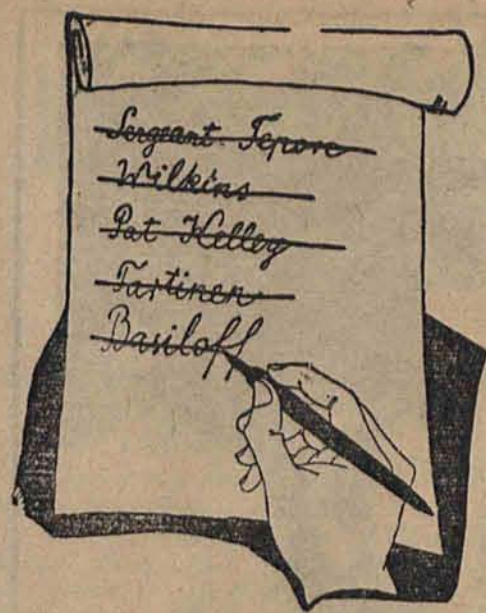 Sergeant Tepore
Wilkins
Pat Kelley
Tartinen
Basiloff